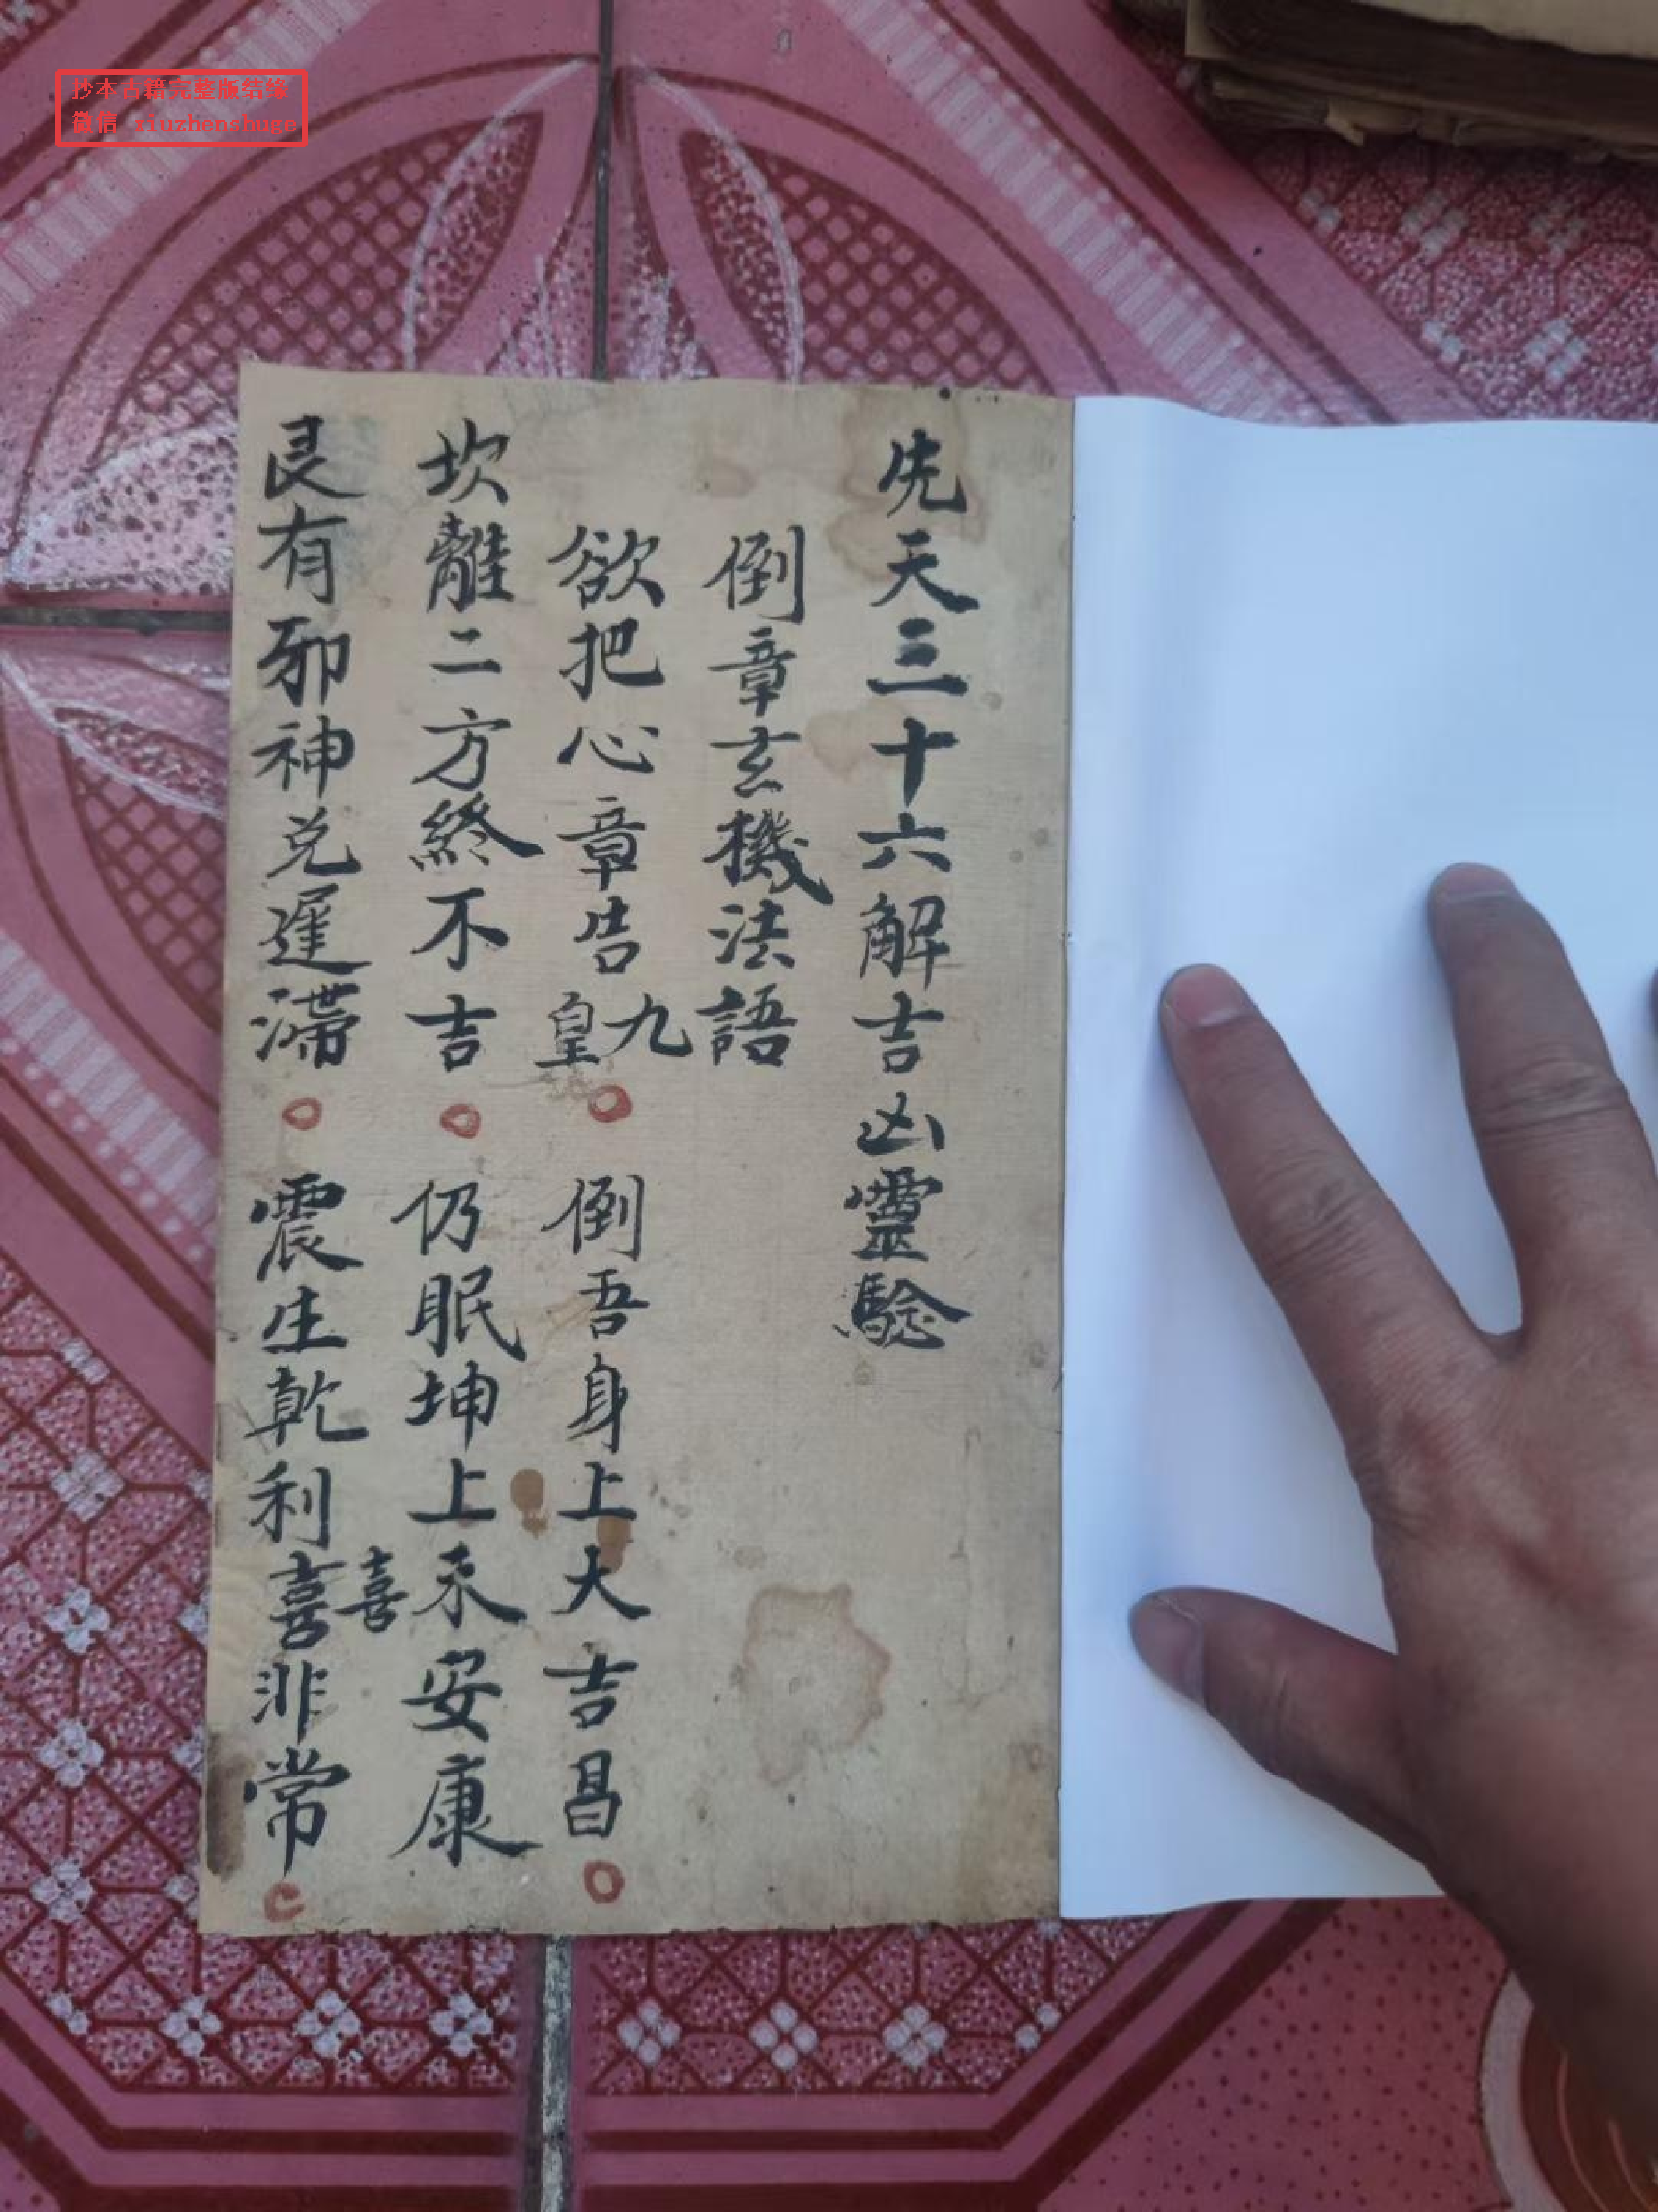 抄本古籍完整版结缘
微信 xiuzhenshuge
先天三十六解吉凶靈驗
倒章玄機法語
欲把心章告九皇 倒吾身上大吉昌
坎離二方終不吉 仍眠坤上永安康
艮有邪神兑遲滯 震生乾利喜喜非常